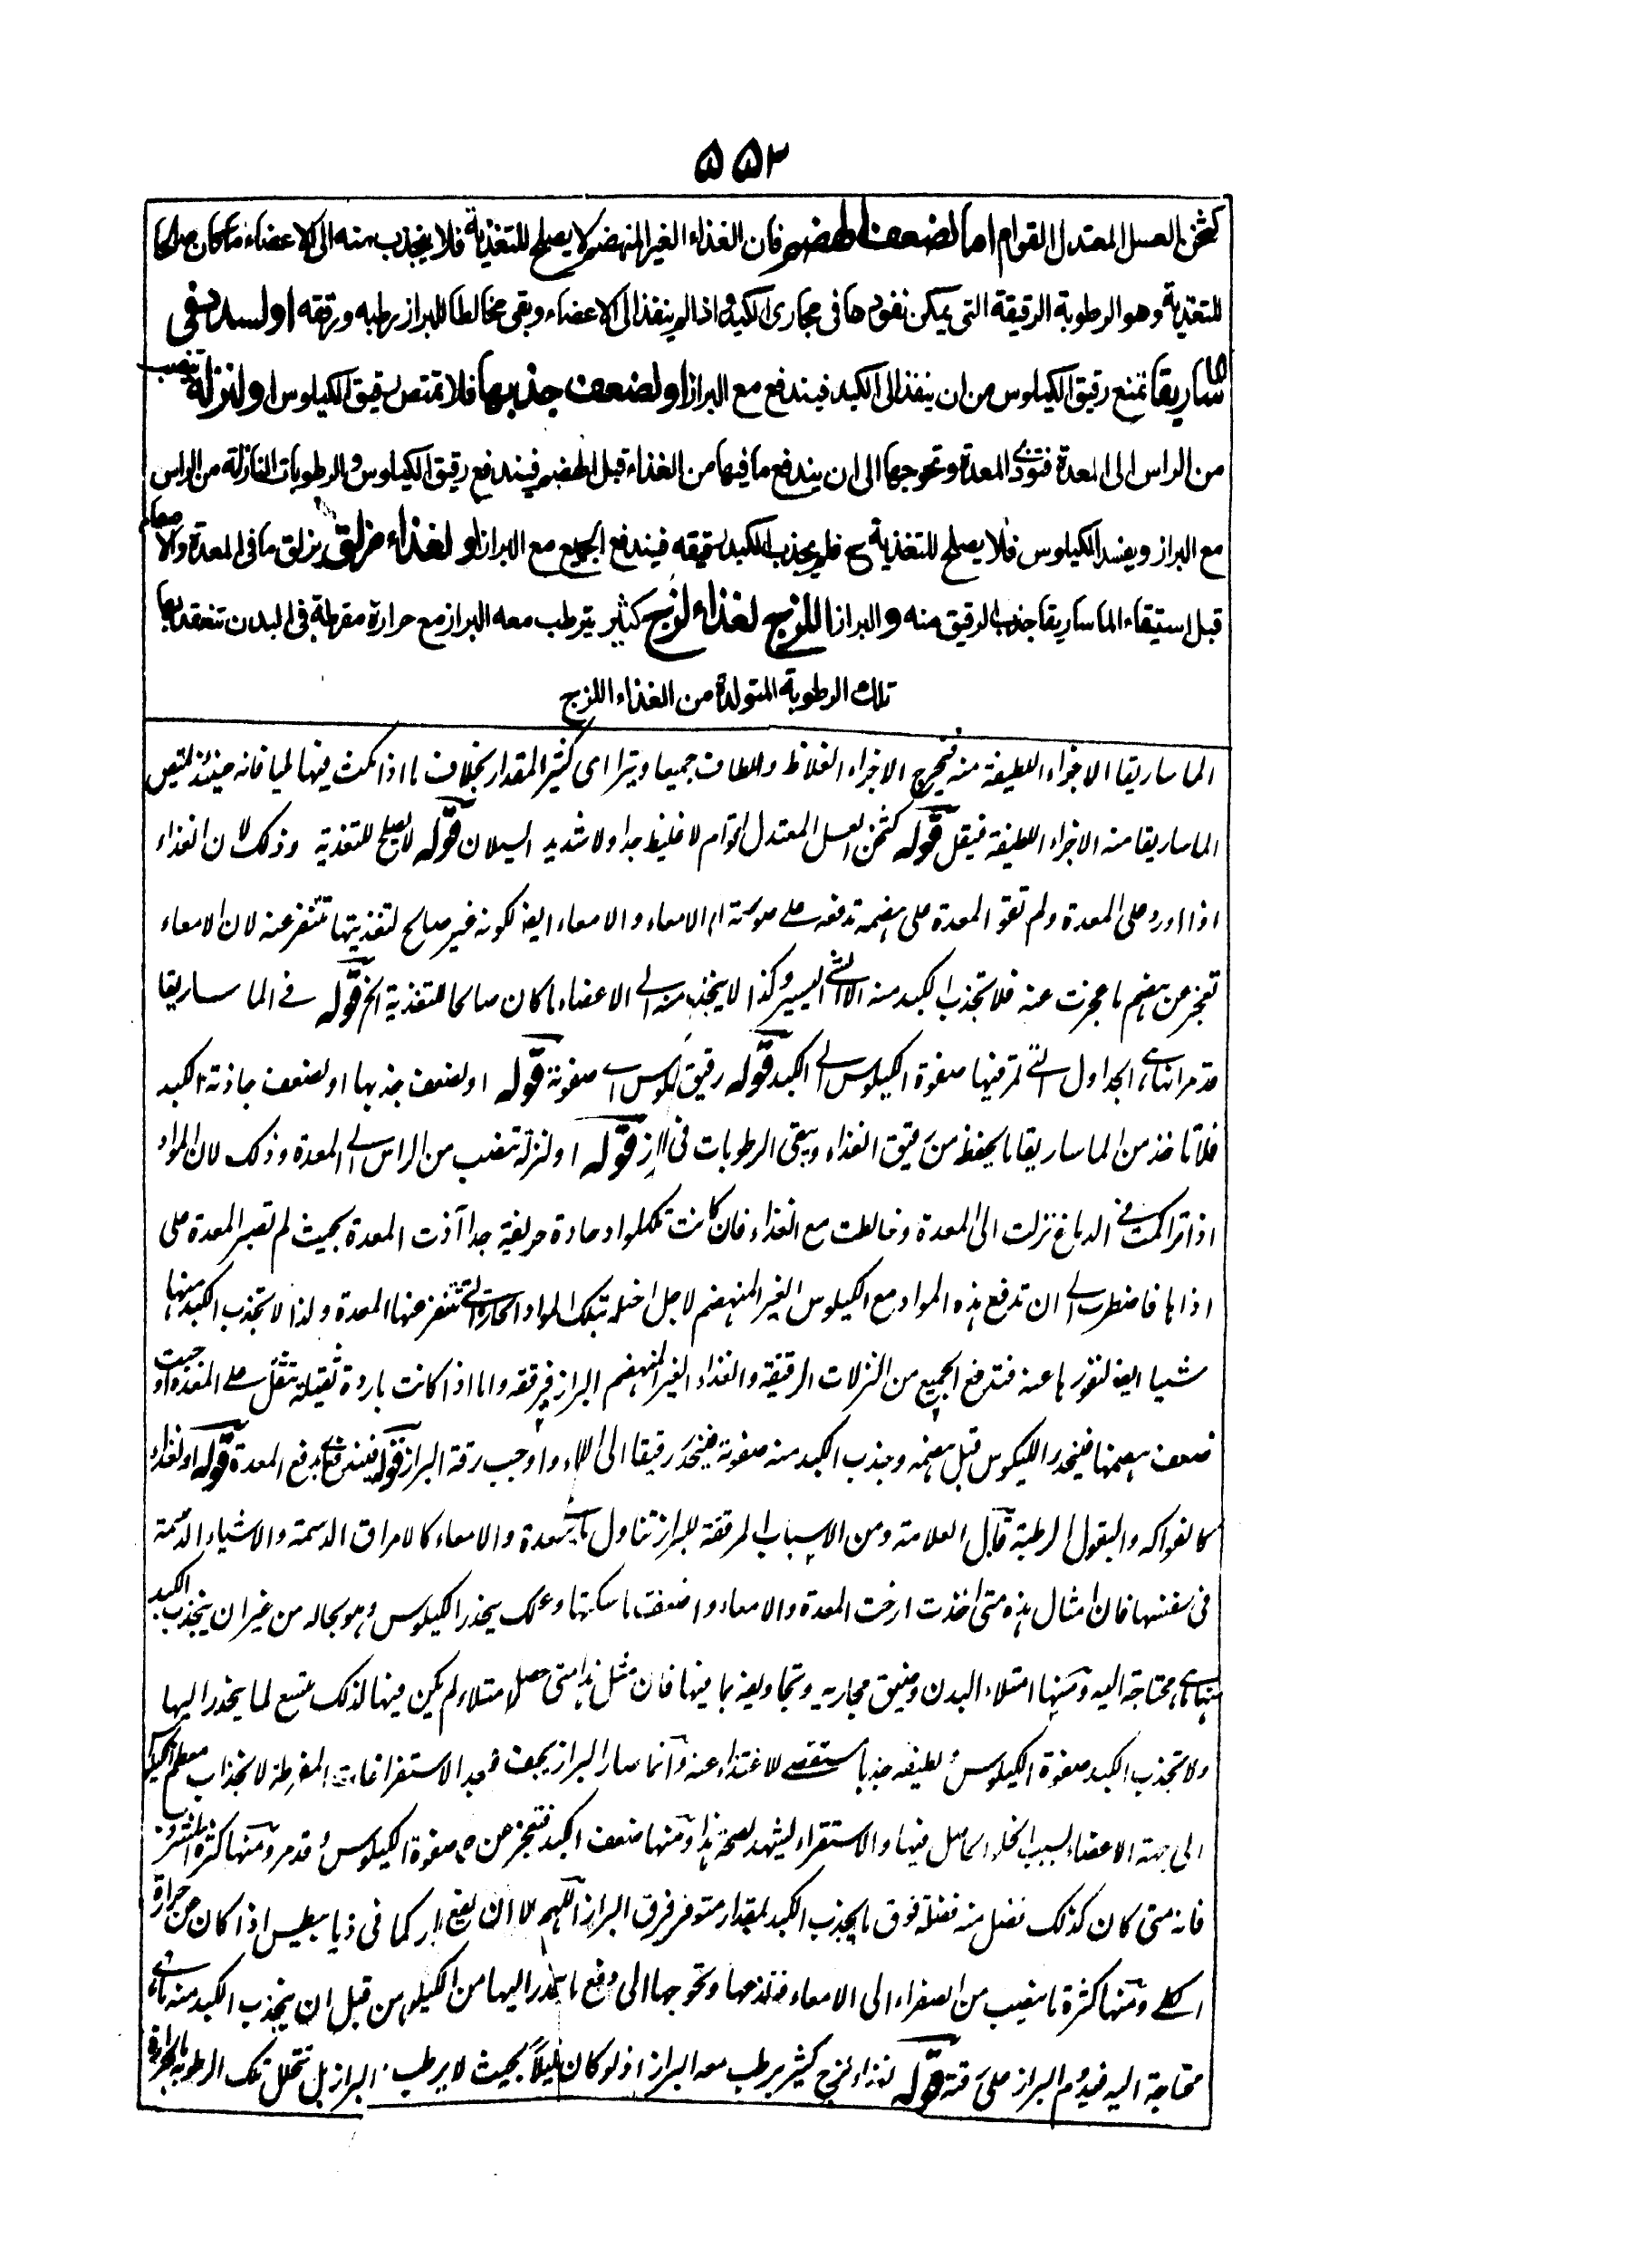 ٥٥٢
كثخن العسل المعتدل القوام اما لضعف الهضم فان الغذاء الغير المنهضم لا يصلح للتغذية فلا ينجذب منه الى الاعضاء ما كان صالحا
للتغذية وهو الرطوبة الرقيقة التى يمكن نفوذها فى مجارى الكبد واذا لم ينفذ الى الاعضاء وبقى مخالطا للبراز رطبه ورققه او لسدد فى
الماساريقا تمنع رقيق الكيلوس من ان ينفذ الى الكبد فيندفع مع البراز او لضعف جذبها فلا تمتص رقيق الكيلوس او لنزلة تنصب
من الراس الى المعدة فتؤذى المعدة وتحوجها الى ان يندفع ما فيها من الغذاء قبل الهضم فيندفع رقيق الكيلوس والرطوبات النازلة من الراس
مع البراز ويفسد الكيلوس فلا يصلح للتغذية ح فلم يجذب الكبد رقيقه فيندفع الجميع مع البراز او لغذاء مزلق يزلق ما فى المعدة والامعاء
قبل استيفاء الماساريقا جذب الرقيق منه والبراز اللزج لغذاء لزج كثير يترطب معه البراز مع حرارة مفرطة فى البدن تنعقد بها
تلك الرطوبة المتولدة من الغذاء اللزج
الماساريقا الاجزاء اللطيفة منه فيخرج الاجزاء الغلاظ واللطاف جميعا ويتراى كثير المقدار بخلاف ما اذا مكث فيها مليا فانه حينئذ تمتص
الماساريقا منه الاجزاء اللطيفة فيقل قوله كثخن العسل المعتدل القوام لا غليظ جدا ولا شديد السيلان قوله لا يصلح للتغذية وذلك لان الغذاء
اذا اورد على المعدة ولم تقو المعدة على هضمه تدفعه على صورته الى الامعاء والامعاء ايضا لكونه غير صالح لتغذيتها تتنفر عنه لان الامعاء
تعجز عن هضم ما عجزت عنه فلا تجذب الكبد منه الا الشئ اليسير وكذا لا ينجذب منه الى الاعضاء ما كان صالحا للتغذية الخ قوله فى الماساريقا
قد مر انها هى الجداول التى تمر فيها صفوة الكيلوس الى الكبد قوله رقيق الكيلوس اى صفوته قوله او لضعف جذبها او لضعف جاذبة الكبد
فلا تاخذ من الماساريقا ما يحفظ من رقيق الغذاء ويبقى الرطوبات فى البراز قوله او لنزلة تنصب من الراس الى المعدة وذلك لان المواد
اذا تراكمت فى الدماغ نزلت الى المعدة وخالطت مع الغذاء فان كانت تلك المواد حادة حريفة جدا آذت المعدة بحيث لم تصبر المعدة على
اذاها فاضطرت الى ان تدفع هذه المواد مع الكيلوس الغير المنهضم لاجل اختلاط تلك المواد الحارة التى تتنفر عنها المعدة ولذا لا تجذب الكبد منها
شيئا ايضا لنفورها عنه فتدفع الجميع من النزلات الرقيقة والغذاء الغير المنهضم البراز فيرققه واما اذا كانت باردة ثقيلة تثقل على المعدة اوجبت
ضعف هضمها فينحدر الكيلوس قبل هضمه وجذب الكبد منه صفوته فينحدر رقيقا الى الامعاء واوجب رقة البراز قوله فيندفع اى بدفع المعدة قوله او لغذاء
كالفواكه والبقول الرطبة قال العلامة ومن الاسباب المرققة للبراز تناول ما يرخى المعدة والامعاء كالامراق الدسمة والاشياء الدسمة
فى نفسها فان امثال هذه متى اخذت ارخت المعدة والامعاء واضعفت ماسكتها وعند ذلك ينحدر الكيلوس وهو بحاله من غير ان ينجذب الكبد
منه ما هى محتاجة اليه ومنها امتلاء البدن وضيق مجاريه وتجاويفه بما فيها فان مثل هذا متى حصل الامتلاء لم يكن فيها لذلك متسع لما ينحدر اليها
ولا تجذب الكبد صفوة الكيلوس ولطيفه جذبا مستقصى للاغتذاء عنه وانما صار البراز يجف بعد الاستفراغات المفرطة لانجذاب معظم الكيلوس
الى جهة الاعضاء بسبب الخلو الحاصل فيها والاستقراء ليشهد لصحة هذا ومنها ضعف الكبد فتعجز عن جذب صفوة الكيلوس وقد مر ومنها كثرة المشروب
فانه متى كان كذلك فضل منه فضلة فوق ما يجذب الكبد بمقدار متوفر فرقق البراز اللهم الا ان يقع ادرار كما فى ذيابيطس اذا كان عن حرارة
الكلى ومنها كثرة ما ينصب من الصفراء الى الامعاء فتلذعها وتحوجها الى دفع ما ينحدر اليها من الكيلوس من قبل ان يجذب الكبد منه ما هى
محتاجة اليه فيدوم البراز على رقته قوله لغذاء لزج كثير يرطب معه البراز اذ لو كان قليلا بحيث لا يرطب البراز بل تتحلل تلك الرطوبة بالحرارة